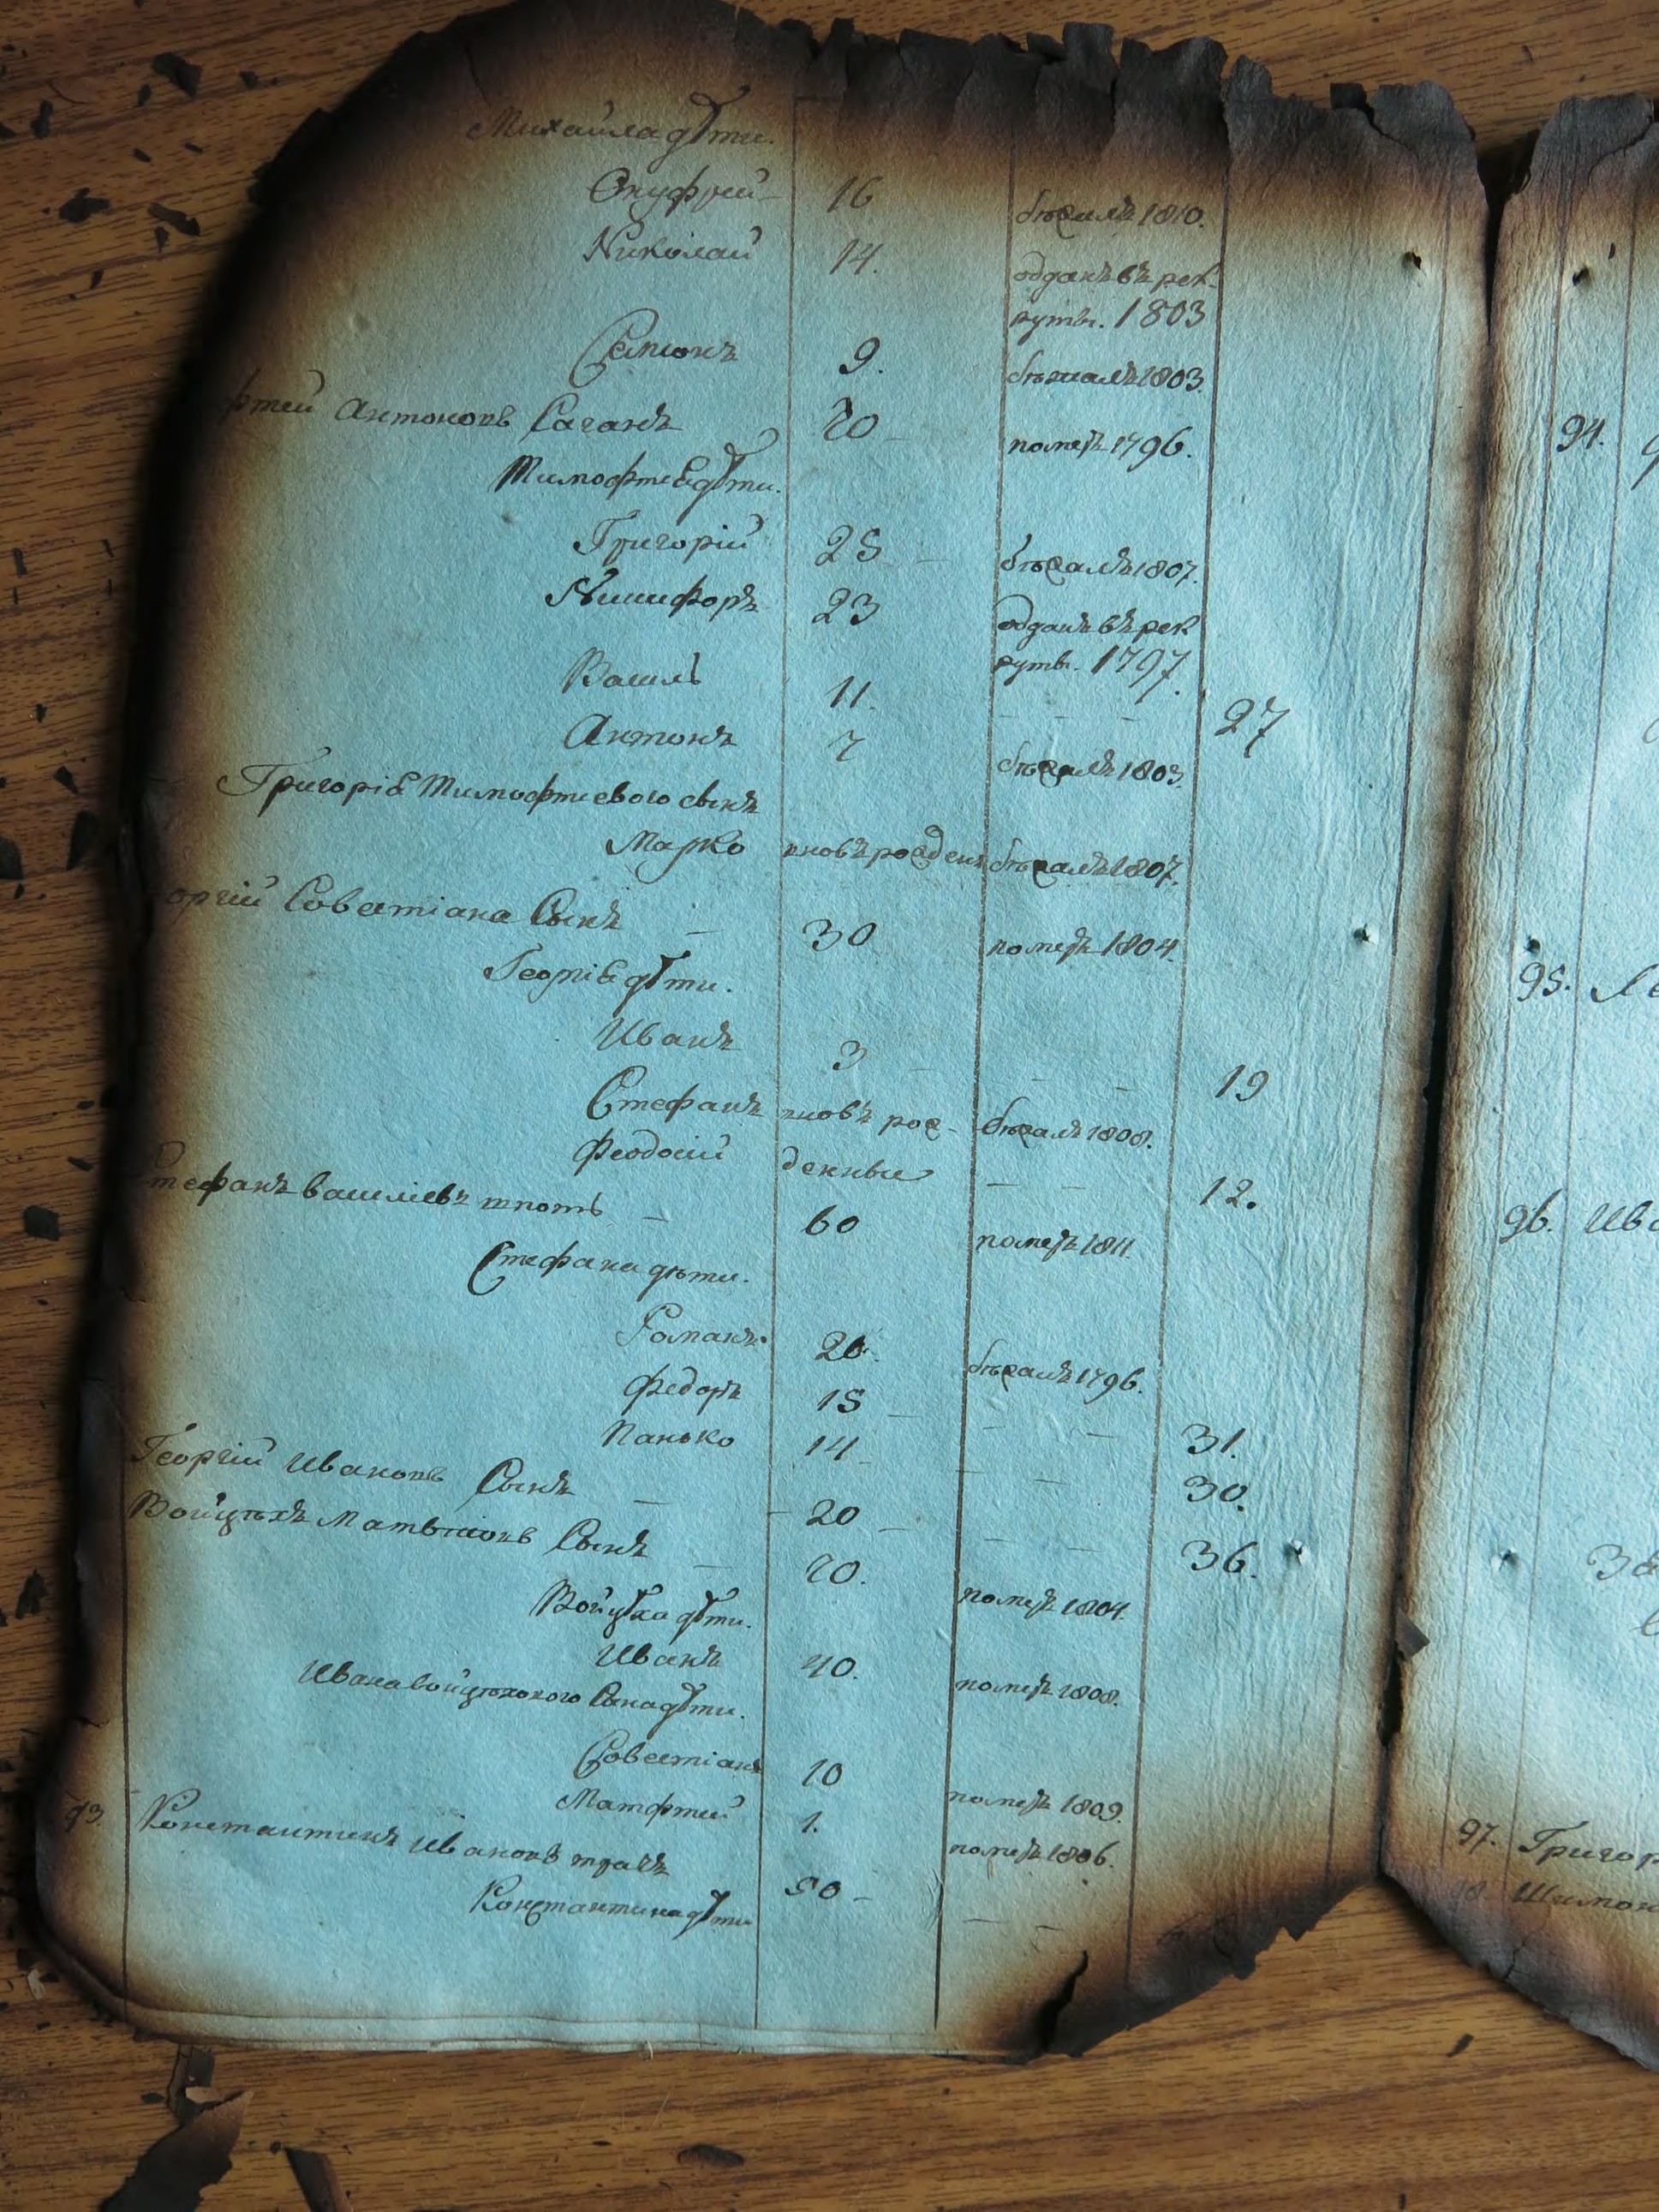 Михайла дѣти.
Онуфрей 16 бѣжалъ 1810.
Николай 14. отданъ въ рек-
руты. 1803
Семионъ 9. бѣжалъ 1803
фтей Антоновъ Саганъ 70 померъ 1796.
Тимофтея дѣти.
Григорій 25 бѣжалъ 1807.
Никифоръ 23 отданъ въ рек
руты. 1797.
Василь 11. 27
Антонъ 7 бѣжалъ 1803.
Григорія Тимофтіевого сынъ
Марко вновъ рожденъ бѣжалъ 1807.
оргій Совестіана Сынъ 30 померъ 1804.
Георгія дѣти.
Иванъ 3 19
Стефанъ вновъ рож- бѣжалъ 1808.
Феодосий денные 12.
тефанъ Василіевъ 60 померъ 1811.
Стефана дѣти.
Романъ 20. бѣжалъ 1796.
Федоръ 15 31.
Панько 14 30.
Георгій Ивановъ Сынъ 20 36.
Войцѣхъ Матвѣіовъ Сынъ 70. померъ 1804.
Войцѣха дѣти.
Иванъ 40. померъ 1808.
Ивана Войцѣхового Сына дѣти.
Совестіанъ 10 померъ 1809.
Матфтей 1. померъ 1806.
93. Константинъ Ивановъ 50
Константина дѣти
94.
95.
96. Ива
97. Григор
98. Шимон